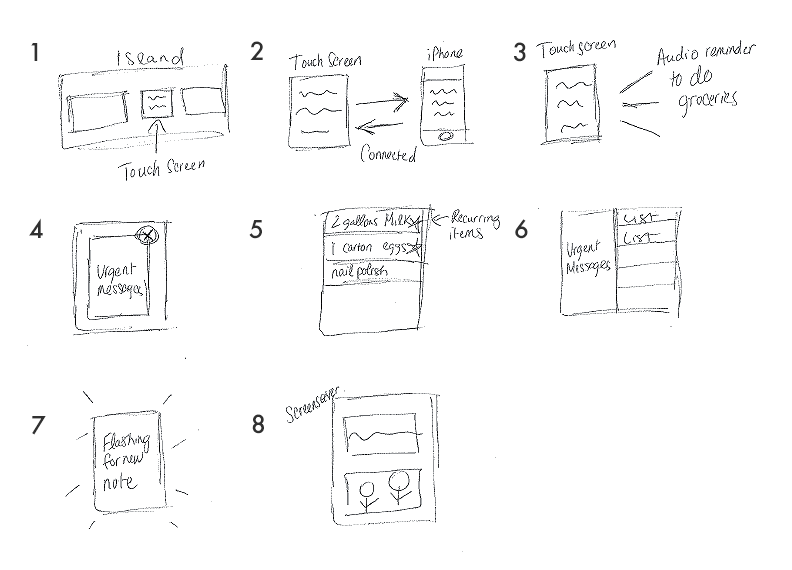 1
Island
Touch Screen
2
Touch Screen
iPhone
Connected
3
Touchscreen
Audio reminder
to do
groceries
4
Urgent
messages
5
2 gallons Milk
1 carton eggs
nail polish
Recurring
items
6
Urgent
Messages
List
List
7
Flashing
for new
note
8
Screensaver